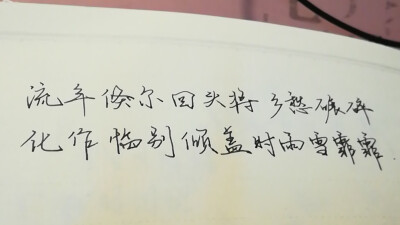 流年倏尔回头将乡愁碾碎
化作临别倾盖时雨雪霏霏